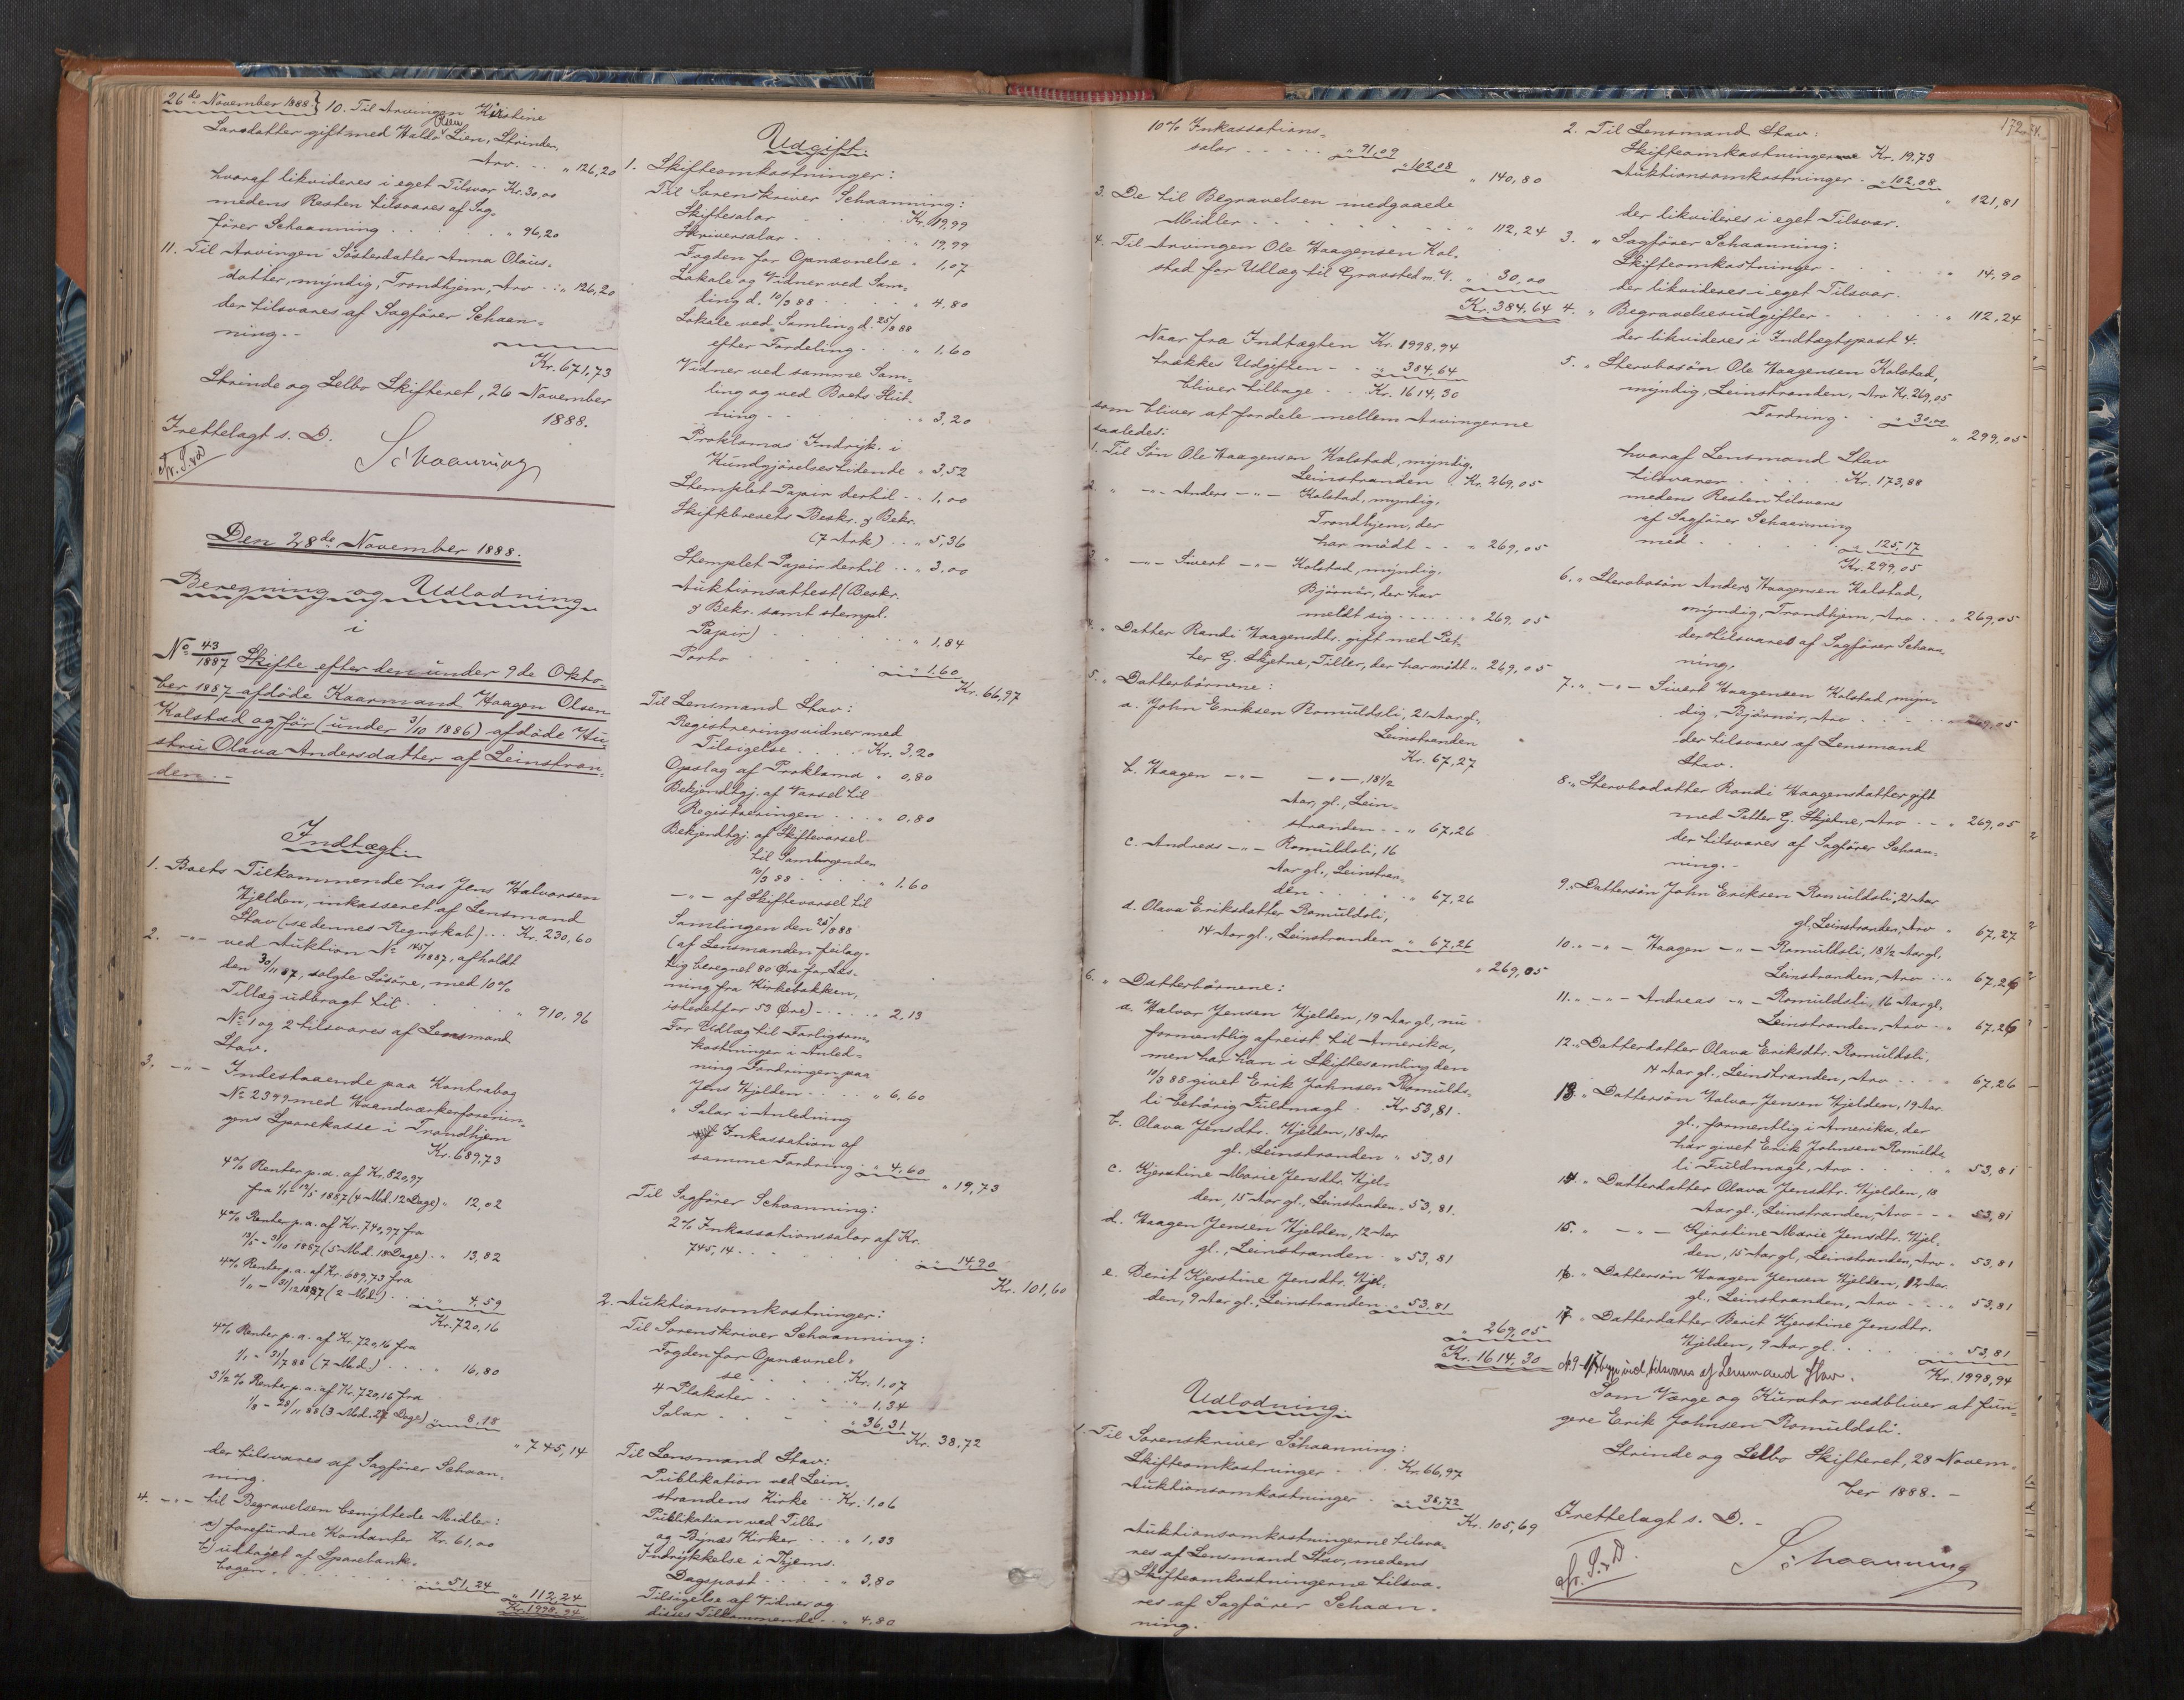 26de November 1888. } 10. Til Arvingen Kirstine
Larsdatter gift med Haldo Olsen Lien, Strinden,
Arv. . . . " 126,20
hvoraf likvideres i eget Tilsvar Kr. 30,00
medens Resten tilsvares af Sag-
fører Schaanning . . . . " 96,20
11. Til Arvingen Søsterdatter Anna Olaus-
datter, myndig, Trondhjem, Arv . . " 126,20
der tilsvares af Sagfører Schaan-
ning. -
Kr. 671,73
Strinde og Selbo Skifteret, 26 November
1888.
Frettelagt s. D.
Schaanning
Den 28de November 1888.
Beregning og Udlodning
i
No 43/1887 Skifte efter den under 9de Okto-
ber 1887 afdøde Kaarmand Haagen Olsen
Kolstad og før (under 3/10 1886) afdøde Hu-
stru Olava Andersdatter af Leinstran-
den. -
Indtægt.
1. Boets Tilkommende hos Jens Halvorsen
Hjelden, inkasseret af Lensmand
Stav (se dennes Regnskab) . . . Kr. 230,60
2. -"- ved Auktion No 45/1887, afholdt
den 30/11 87, solgte Løsøre, med 10%
Tillæg udbragt til . . . " 910,96
No 1 og 2 tilsvares af Lensmand
Stav.
3. -"- Indestaaende paa Kontrabog
No 2399 med Haandværkerforenin-
gens Sparekasse i Trondhjem
Kr. 689,73
4% Renter p. a. af Kr. 820,97
fra 1/1 - 12/5 1887 (4 Md. 12 Dage) " 12,02
4% Renter p. a. af Kr. 740,97 fra
13/5 - 31/10 1887 (5 Md. 18 Dage) . " 13,82
4% Renter p. a. af Kr. 689,73 fra
1/11 - 31/12 1887 (2 Md.) . . . " 4,59
Kr. 720,16
4% Renter p. a. af Kr. 720,16 fra
1/1 - 31/7 88 (7 Md.) . . . . " 16,80
3 1/2 % Renter p. a. af Kr. 720,16 fra
1/8 - 28/11 88 (3 Md. 27 Dage) " 8,18
" 745,14
der tilsvares af Sagfører Schaan-
ning.
4. -"- til Begravelsen benyttede Midler:
a) forefundne Kontanter Kr. 61,00
b) udtaget af Sparebank-
bogen . . . . . . " 51,24
" 112,24
Kr. 1998,94
Udgift.
1. Skifteomkostninger:
Til Sorenskriver Schaanning:
Skiftesalar . . . . Kr. 19,99
Skriversalar . . . . " 19,99
Fogden for Opnævnelse . " 1,07
Lokale og Vidner ved Sam-
ling d. 10/3 88 . . . . " 4,80
Lokale ved Samling d. 25/8 88
efter Fordeling . . . " 1,60
Vidner ved samme Sam-
ling og ved Boets Slut-
ning . . . . . " 3,20
Proklamas Indryk. i
Kundgjørelsestidende " 3,52
Stemplet Papir dertil . . " 1,00
Skiftebrevets Beskr. & Bekr.
(7 Ark) . . " 5,36
Stemplet Papir dertil . . " 3,00
Auktionsattest (Beskr.
& Bekr. samt stempl.
Papir) . . . . . " 1,84
Porto . . . . . " 1,60
Kr. 66,97
Til Lensmand Stav:
Registreringsvidner med
Tilsigelse . . . . Kr. 3,20
Opslag af Proklama " 0,80
Bekjendtgj. af Varsel til
Registreringen . . . . " 0,80
Bekjendtgj. af Skiftevarsel
til Samlingen den
10/3 88 . . . . " 1,60
-"- af Skiftevarsel til
Samlingen den 25/8 88
(af Lensmanden feilag-
tig beregnet 80 Øre for Læs-
ning fra Kirkebakken,
istedetfor 53 Øre) . . . . " 2,13
For Udlæg til Forligsom-
kostninger i Anled-
ning Fordringen paa
Jens Hjelden . . . . " 6,60
" Salar i Anledning
Inkassation af
samme Fordring . " 4,60
" 19,73
Til Sagfører Schaanning:
2% Inkassationssalar af Kr.
745,14 . . . . " 14,90
Kr. 101,60
2. Auktionsomkostninger:
Til Sorenskriver Schaanning:
Fogden for Opnævnel-
se . . . . Kr. 1,07
4 Plakater . . . . " 1,34
Salar . . . . " 36,31
Kr. 38,72
Til Lensmand Stav:
Publikation ved Lein-
strandens Kirke . . Kr. 1,06
Publikation ved Tiller
og Bynæs Kirker . . . . " 1,33
Indrykkelse i Thjems.
Dagspost . . . . . " 3,80
Tilsigelse af Vidner og
disses Tilkommende . . " 4,80
172.
10% Inkassations-
salar . . . . . " 91,09
" 102,08
" 140,80
3. De til Begravelsen medgaaede
Midler . . . . . . . " 112,24
4. Til Arvingen Ole Haagensen Kol-
stad for Udlæg til Gravsted m. V. " 30,00
Kr. 384,64
Naar fra Indtægten Kr. 1998,94
trækkes Udgiften . . " 384,64
bliver tilbage . . . Kr. 1614,30
som bliver at fordele mellem Arvingerne
saaledes:
1. Til Søn Ole Haagensen Kolstad, myndig,
Leinstranden . Kr. 269,05
2. " -"- Anders -"- Kolstad, myndig,
Trondhjem, der
har mødt . . . " 269,05
3. " -"- Sivert -"- Kolstad, myndig,
Bjørnør, der har
meldt sig . . . . " 269,05
4. " Datter Randi Haagensdtr. gift med Pet-
ter G. Skjetne, Tiller, der har mødt " 269,05
5. " Datterbørnene:
a. John Eriksen Romuldsli, 21 Aar gl.,
Leinstranden
Kr. 67,27
b. Haagen -"- -"-, 18 1/2
Aar, gl., Lein-
stranden . . . " 67,26
c. Andreas -"- Romuldsli, 16
Aar gl., Leinstran-
den . . . . . " 67,26
d. Olava Eriksdatter Romuldsli,
14 Aar gl., Leinstranden " 67,26
" 269,05
6. " Datterbørnene:
a. Halvor Jensen Hjelden, 19 Aar gl., nu
formentlig afreist til Amerika,
men har han i Skiftesamling den
10/3 88 givet Erik Johnsen Romulds-
li behørig Fuldmagt . Kr. 53,81.
b. Olava Jensdtr. Hjelden, 18 Aar
gl., Leinstranden " 53,81
c. Kjerstine Marie Jensdtr. Hjel-
den, 15 Aar gl., Leinstranden " 53,81.
d. Haagen Jensen Hjelden, 12 Aar
gl., Leinstranden . " 53,81
e. Berit Kjerstine Jensdtr. Hjel-
den, 9 Aar gl., Leinstranden " 53,81
" 269,05
Kr. 1614,30
Udlodning.
1. Til Sorenskriver Schaanning:
Skifteomkostninger . . . Kr. 66,97
Auktionsomkostninger . . " 38,72
Kr. 105,69
Auktionsomkostningerne tilsva-
res af Lensmand Stav, medens
Skifteomkostningerne tilsva-
res af Sagfører Schaan-
ning.
2. Til Lensmand Stav:
Skifteomkostningerne Kr. 19,73
Auktionsomkostninger . " 102,08
" 121,81
der likvideres i eget Tilsvar.
3. " Sagfører Schaanning:
Skifteomkostninger . . . . " 14,90
der likvideres i eget Tilsvar.
4. " Begravelsesudgifter . . . . " 112,24
der likvideres i Indtægtspost 4.
5. " Stervbosøn Ole Haagensen Kolstad,
myndig, Leinstranden, Arv Kr. 269,05
Fordring . . " 30,00
" 299,05
hvoraf Lensmand Stav
tilsvarer . . . . Kr. 173,88
medens Resten tilsvares
af Sagfører Schaanning
med . . . . . " 125,17
Kr. 299,05
6. " Stervbosøn Anders Haagensen Kolstad,
myndig, Trondhjem, Arv . . " 269,05
der tilsvares af Sagfører Schaan-
ning.
7. " -"- Sivert Haagensen Kolstad, myn-
dig, Bjørnør, Arv . . . . " 269,05
der tilsvares af Lensmand
Stav.
8. " Stervbodatter Randi Haagensdatter gift
med Petter G. Skjetne, Arv . . " 269,05
der tilsvares af Sagfører Schaan-
ning. -
9. " Dattersøn John Eriksen Romuldsli, 21 Aar
gl., Leinstranden, Arv " 67,27
10. " -"- Haagen -"- Romuldsli, 18 1/2 Aar gl.,
Leinstranden, Arv . . " 67,26
11. " -"- Andreas -"- Romuldsli, 16 Aar gl.,
Leinstranden, Arv . . " 67,26
12. " Datterdatter Olava Eriksdtr. Romuldsli,
14 Aar gl., Leinstranden, Arv . . . " 67,26
13. " Dattersøn Halvor Jensen Hjelden, 19 Aar
gl., formentlig i Amerika, der
har givet Erik Johnsen Romulds-
li Fuldmagt, Arv . . . . " 53,81
14. " Datterdatter Olava Jensdtr. Hjelden, 18
Aar gl., Leinstranden, Arv . . . " 53,81
15. " -"- Kjerstine Marie Jensdtr. Hjel-
den, 15 Aar gl., Leinstranden, Arv " 53,81
16. " Dattersøn Haagen Jensen Hjelden, 12 Aar
gl., Leinstranden, Arv . . . " 53,81
17. " Datterdatter Berit Kjerstine Jensdtr.
Hjelden, 9 Aar gl. . . . . " 53,81
Kr. 1998,94
No 9-17 tilsvares af Lensmand Stav.
Som Værge og Kurator vedbliver at fun-
gere Erik Johnsen Romuldsli.
Strinde og Selbo Skifteret, 28 Novem-
ber 1888. -
Frettelagt s. D. -
Schaanning